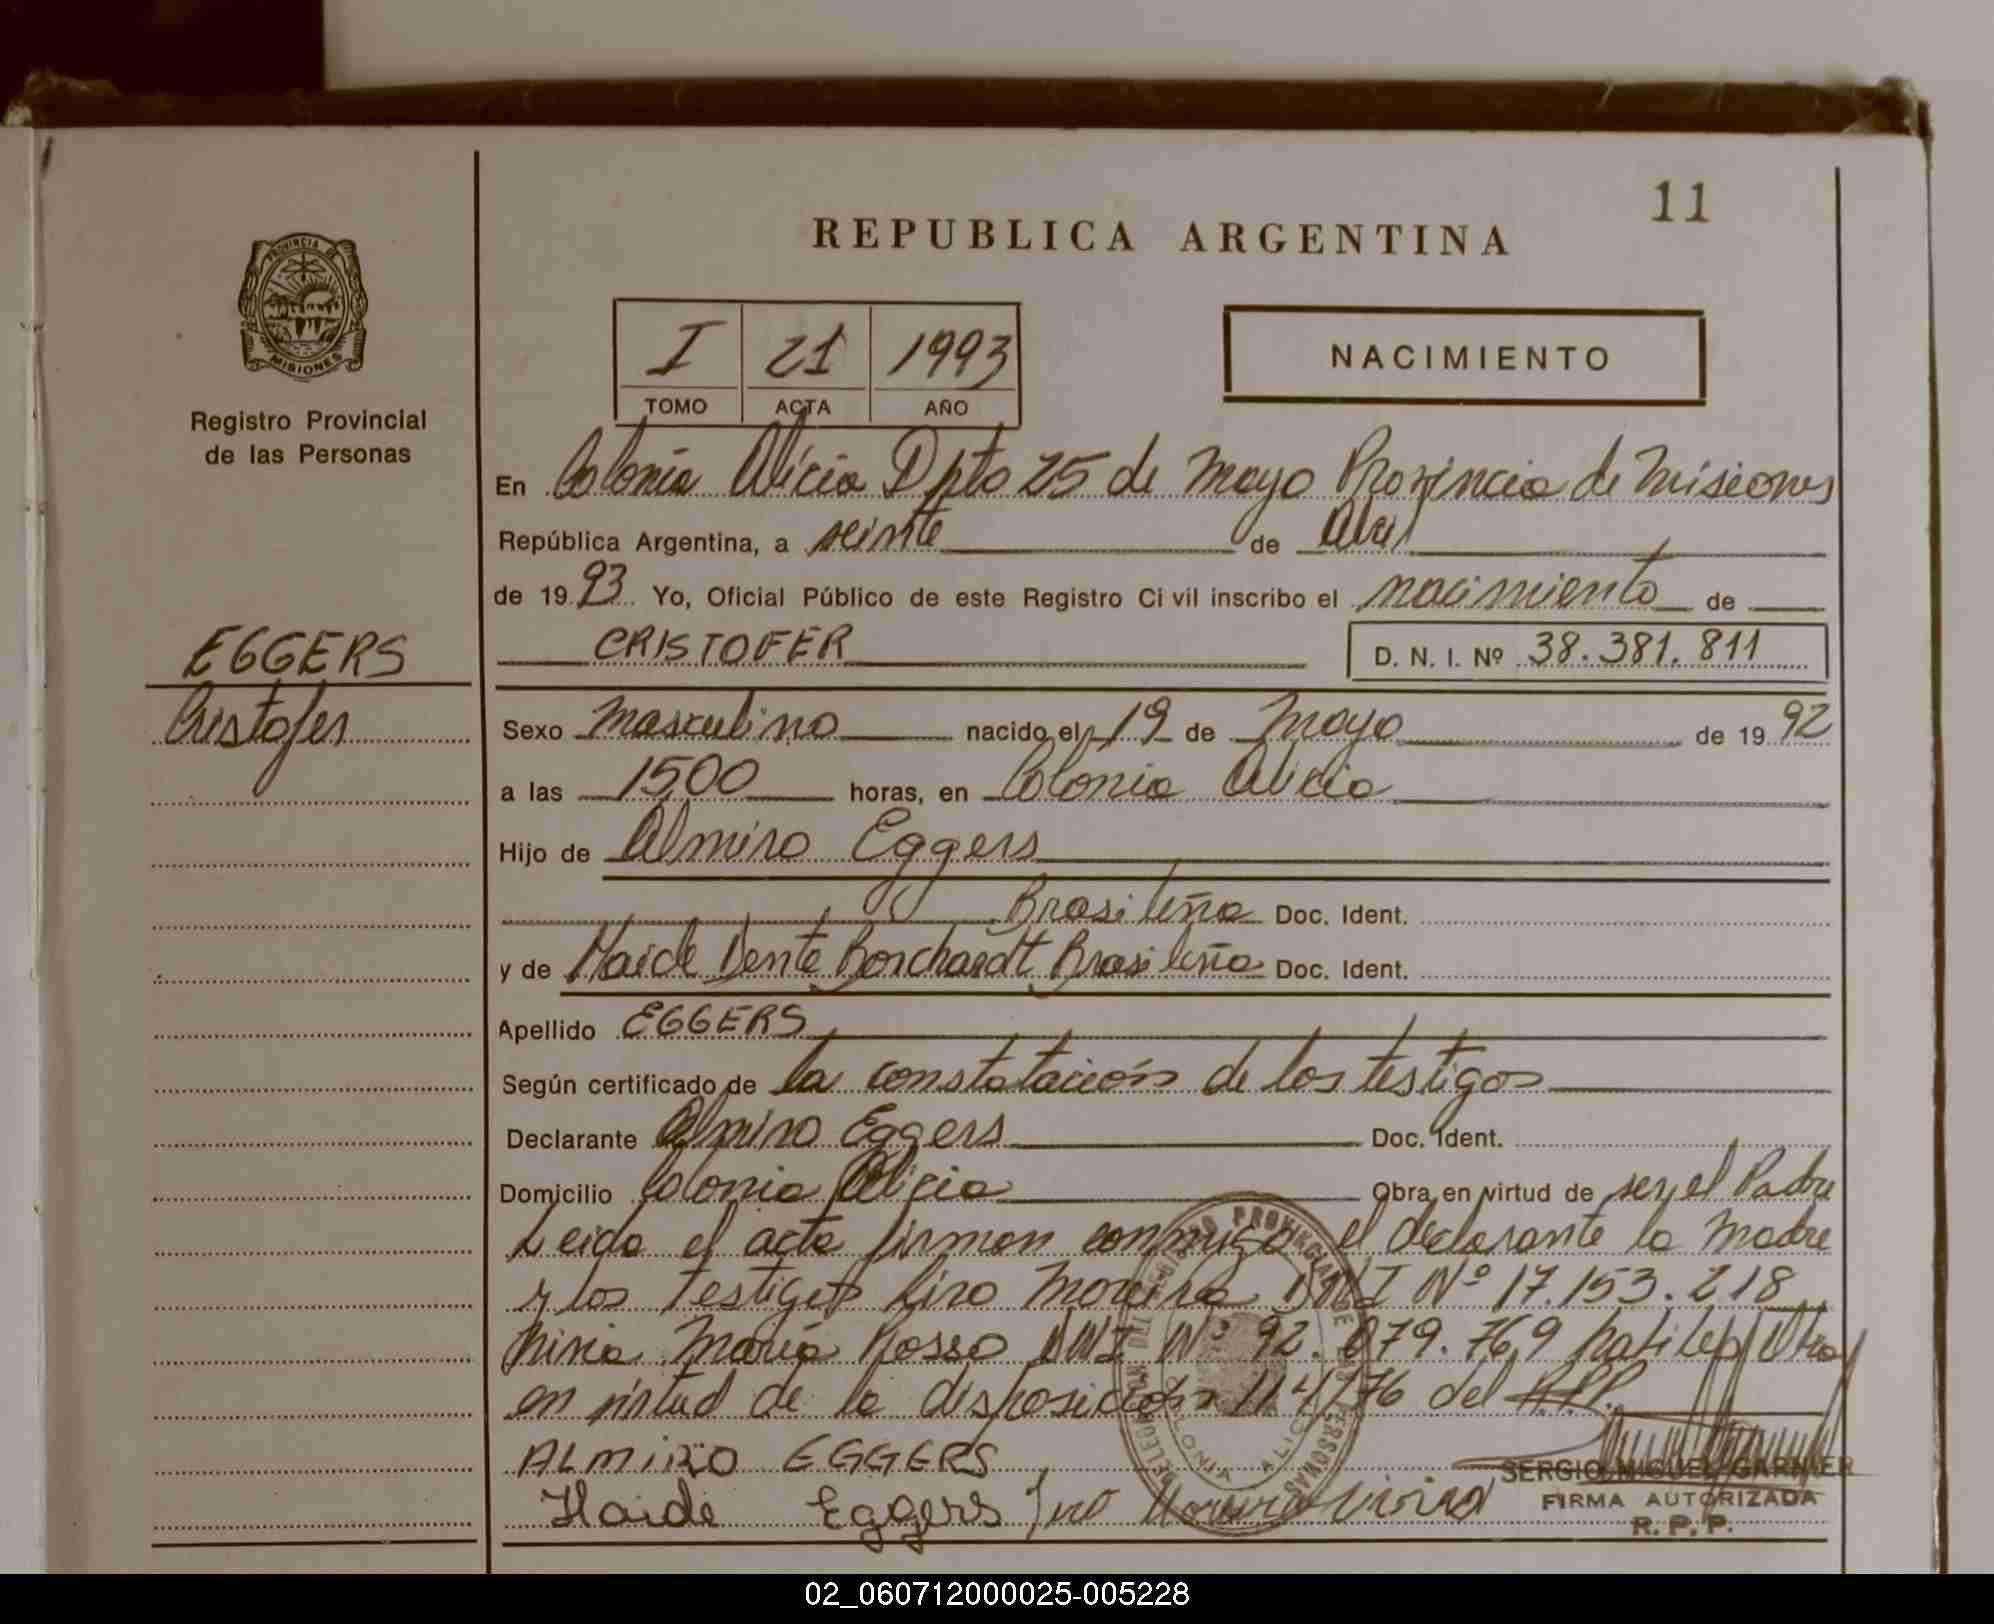 11
REPUBLICA ARGENTINA
PROVINCIA DE
MISIONES
Registro Provincial
de las Personas
I 21 1993
TOMO ACTA AÑO
NACIMIENTO
En Colonia Alicia Dpto 25 de Mayo Provincia de Misiones
República Argentina, a veinte de Abril
de 1993 Yo, Oficial Público de este Registro Civil inscribo el nacimiento de
CRISTOFER D. N. I. Nº 38.381.811
EGGERS
Cristofer
Sexo Masculino nacido el 19 de Mayo de 1992
a las 1500 horas, en Colonia Alicia
Hijo de Almiro Eggers
Brasileña Doc. Ident.
y de Haide Dente Borchardt Brasileña Doc. Ident.
Apellido EGGERS
Según certificado de la constatación de los testigos
Declarante Almiro Eggers Doc. Ident.
Domicilio Colonia Alicia Obra en virtud de ser el Padre
Leida el acta firman conmigo el declarante la Madre
y los testigos Liro Moreira DNI Nº 17.153.218
Maria Rosso DNI Nº 92.079.769
en virtud de la disposición 114/76 del R.P.P.
ALMIRO EGGERS
Haide Eggers
SERGIO MIGUEL GARNIER
FIRMA AUTORIZADA
R. P. P.
COLONIA ALICIA
02_060712000025-005228